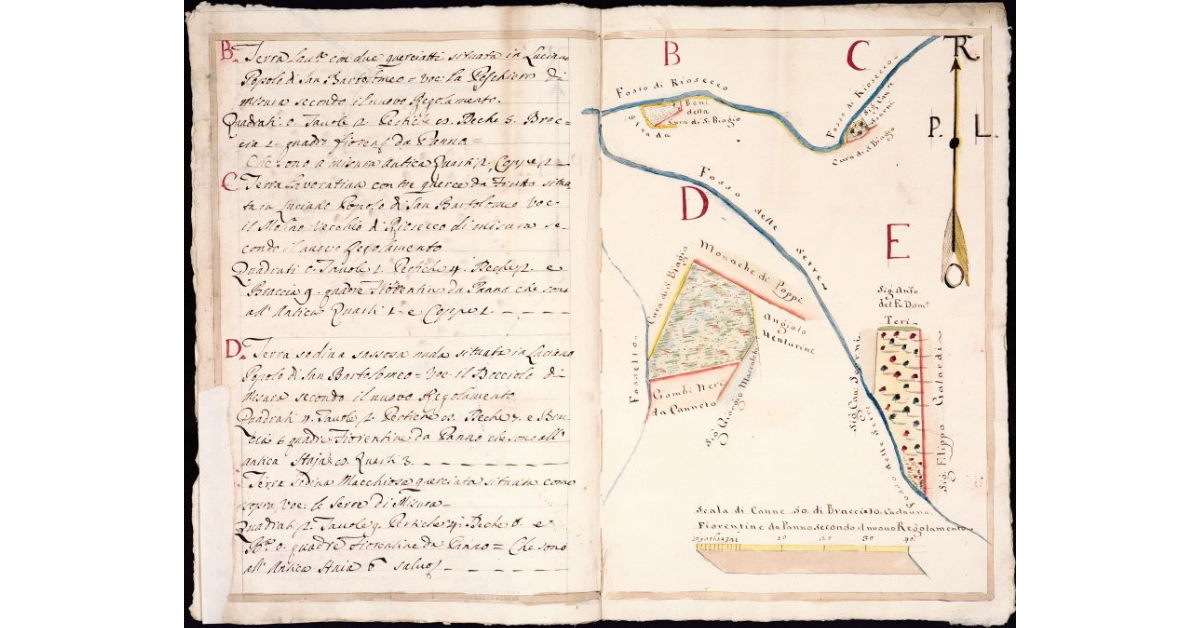 B. Terra Lau.ª con due querciatti situata in Luciano
Popolo di San Bartolomeo = voc. la Peschiera di
misura secondo il nuovo Regolamento.
Quadrati 0. Tavole 2. Pertiche 9. Peche 5. Brac-
cia 2. quadre fiorent. da Panno =
Che sono a misura antica Quarti 2. Coppe 2 =
C. Terra Lavorativa con tre querce da Frutto situa
ta in Luciano Popolo di San Bartolomeo voc.
il Molino vecchio di Rioseco di misura se-
condo il nuovo Regolamento
Quadrati 0. Tavole 1. Pertiche 4. Peche 2. e
Braccia 9. quadre Fiorentine da Panno che sono
all' Antica Quarti 1. e Coppe 1.
D. Terra sodiva sassosa nuda situata in Luciano
Popolo di San Bartolomeo = voc. il Bocciolo di
Misura secondo il nuovo Regolamento
Quadrati Tavole Pertiche Peche 7. e Brac
cia 6 quadre Fiorentine da Panno che sono all'
antica Staja Quarti 3.
Terra Sodiva Macchiosa querciata situata come
sopra, voc. le Serre di Misura
Quadrati 2. Tavole 9. Pertiche 4. Peche 8. e
B.ª 0. quadre Fiorentine da Panno = Che sono
all' Antica Staia 6 salvo
B
C
R
P. L.
O
Fosso di Riosecco
Beni
della
Cura di S. Biagio
Strada
Fosso di Riosecco
Sig. Cav.
Cura di S. Biagio
D
Fosso delle Serre
E
Cura di S. Biagio
Monache di Poppi
Angiolo
Venturini
Fossetto
Gambi Neri
da Canneto
Sig. Giorgio
Sig. Ant.º
del q. Dom.º
Teri
Sig. Cav.
Sig. Filippo Galardi
Fosso delle Serre
Scala di Canne 50. di Braccia 10. Cadauna
Fiorentine da Panno secondo il nuovo Regolamento
10 20 30 40